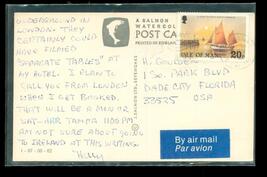 UNDERGROUND IN
LONDON. THEY
CERTAINLY COULD
HAVE FILMED
"SEPARATE TABLES" AT
MY HOTEL. I PLAN TO
CALL YOU FROM LONDON
WHEN I GET BACK.
THAT WILL BE A MON OR
TAMPA 1100PM
AM NOT SURE ABOUT GOING
TO IRELAND AT THIS WRITING.
A SALMON
WATERCOL
POST CA
ISLE OF MAN
20p
PARK BLVD
DADE CITY, FLORIDA
33525 USA
By air mail
Par avion